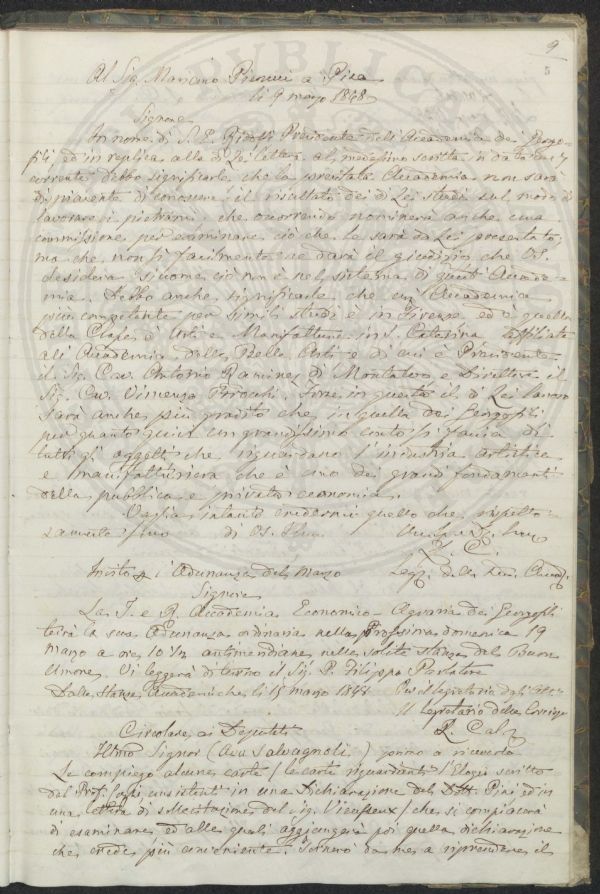 9
5
Al Sig. Mariano Pierucci a Pisa
li 9 marzo 1848
Signore
In nome di S. E. Ridolfi Presidente dell'Accademia dei Georgo-
fili ed in replica alla di lei lettera al medesimo scritta in data dei 7
corrente debbo significarle che la prestata Accademia non sarà
dispiacente di conoscere il risultato dei di Lei studi sul modo di
lavorare i pietrami, che occorrendo nominerà anche una
commissione per esaminare ciò che le sarà da Lei presentato;
ma che non sì facilmente ne darà il giudizio che VS.
desidera siccome ciò non è nel sistema di questa Accade-
mia. Debbo anche significarle che un'Accademia
più competente per simili studi è in Firenze ed è quella
della Classe d'Arti e Manifatture in S. Caterina affiliata
all'Accademia delle Belle Arti e di cui è Presidente
il Sig. Cav. Antonio Ramirez di Montalvo e Direttore il
Sig. Cav. Vincenzo Forse in questa il di Lei lavoro
sarà anche più gradito che in quella dei Georgofili
per quanto quivi un grandissimo conto si faccia di
tutti gli oggetti che riguardano l'industria artistica
e manifatturiera che è uno dei grandi fondamenti
della pubblica e privata economia.
Voglia intanto credermi quello che rispetto-
samente sono di VS. Illma
L. C.
Segr. della Accad.
Invito p l'Adunanza del Marzo
Signore
La I. e R. Accademia Economico-Agraria dei Georgofili
terrà la sua Adunanza ordinaria nella prossima domenica 19
marzo a ore 10 1/2 antimeridiane nelle solite stanze del Buon
Umore. Vi leggerà di turno il Sig. P. Filippo Parlatore
Dalle Stanze Accademiche li 15 marzo 1848 Per il Segretario degli Atti
Il Segretario delle Corrisp.
Circolare ai Deputati
Illmo Signor (Avv. Salvagnoli) primo a riceverla
Le compiego alcune carte / le carte riguardanti l'Elogio scritto
dal Prof. consistenti in una Dichiarazione del Dott. Pini ed in
una lettera di sollecitazione del Sig. Vieusseux / che si compiacerà
di esaminare ed alle quali aggiungerà poi quella dichiarazione
che crede più conveniente. Tornerò da me a riprendere il